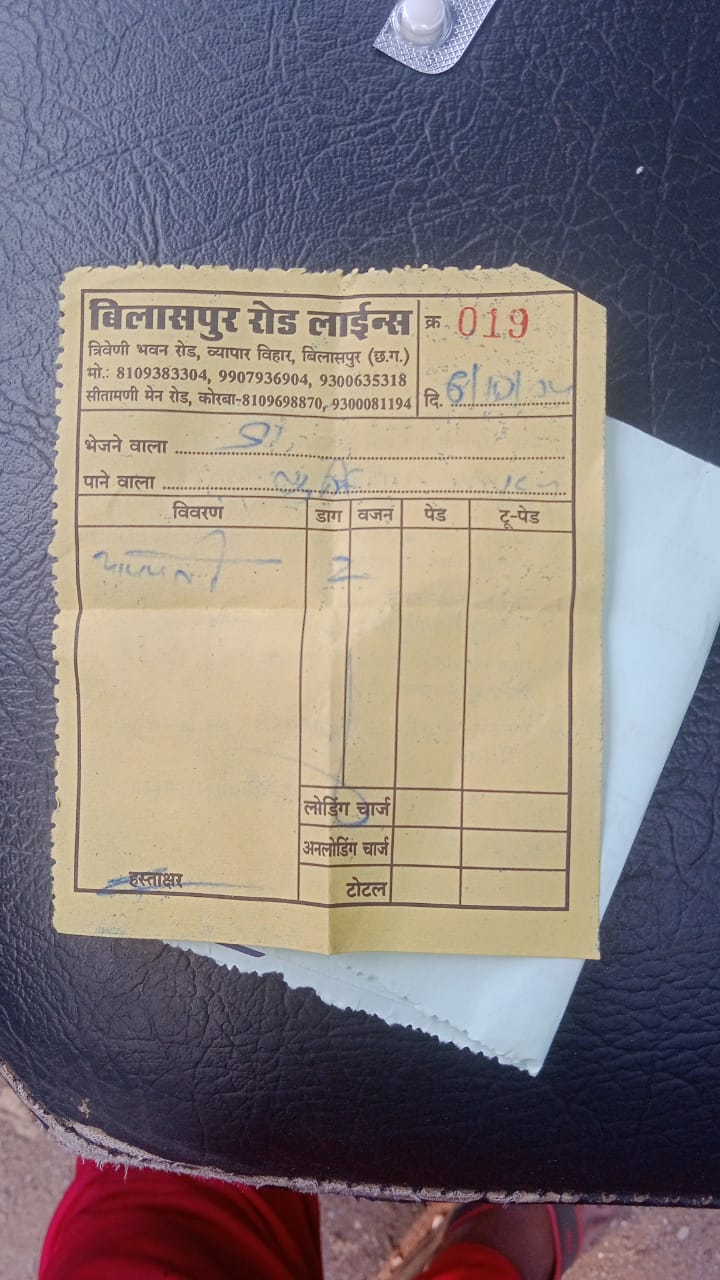 बिलासपुर रोड लाईन्स
क्र 019
त्रिवेणी भवन रोड, व्यापार विहार, बिलासपुर (छ.ग.)
मो.: 8109383304, 9907936904, 9300635318
सीतामणी मेन रोड, कोरबा-8109698870, 9300081194
दि.
भेजने वाला
पाने वाला
विवरण डाग वजन पेड टू-पेड
2
लोडिंग चार्ज
अनलोडिंग चार्ज
हस्ताक्षर
टोटल